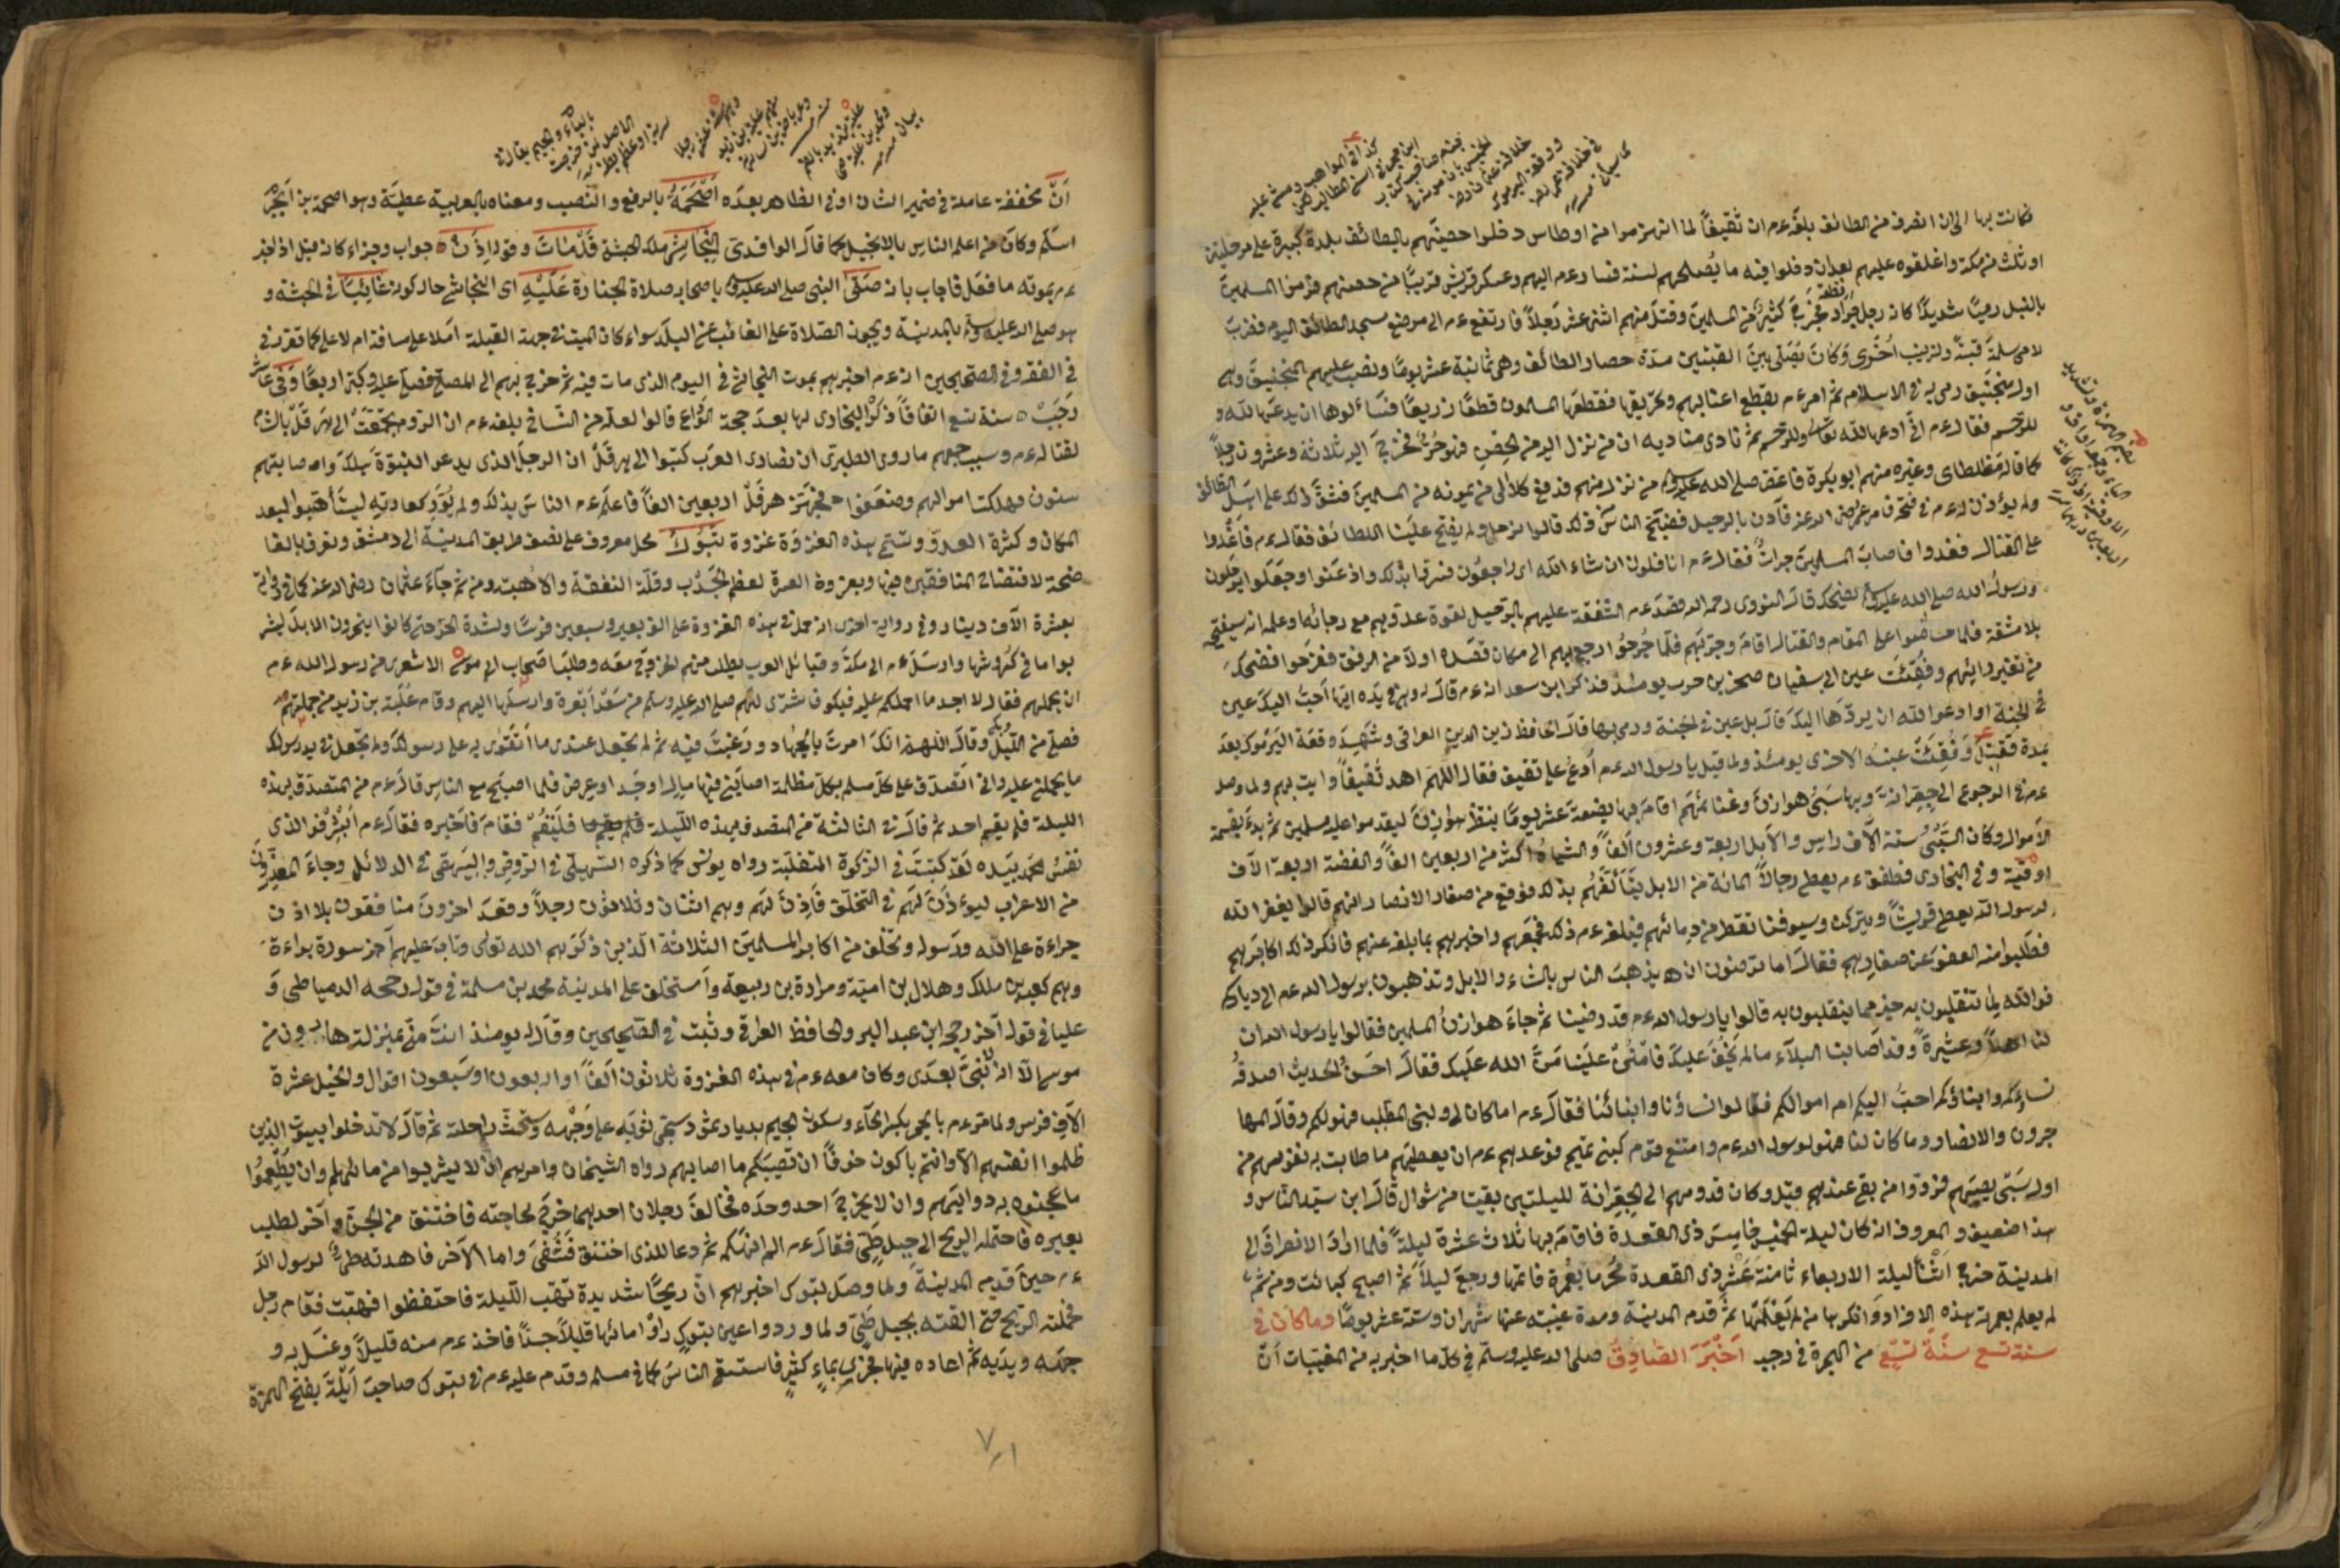 فكانت بها الى ان انصرف من الطائف بلغه عم ان ثقيفًا لما انهزموا من اوطاس دخلوا حصنهم بالطائف بلدة كبيرة على مرحلتين
او ثلث من مكة واغلقوه عليهم بعد ان دخلوا فيه ما يُصلحهم لسنة فسار عم اليهم وعسكر قريبًا من حصنهم فرموا المسلمين
بالنبل رميًا شديدًا كان رجل جراد فجرح كثير من المسلمين وقتل منهم اثنى عشر رجلاً فارتفع عم الى موضع مسجد الطائف اليوم فضرب
لام سلمة قبة ولزينب اخرى وكان يصلى بين القبتين مدة حصار الطائف وهى ثمانية عشر يومًا ونصب عليهم المنجنيق وهو
اول منجنيق رمى به فى الاسلام ثم امر عم بقطع اعنابهم وتحريقها فقطعها المسلمون قطعًا ذريعًا فسألوها ان يدعها لله و
للرحم فقال عم انى ادعها لله تعالى وللرحم ثم نادى مناديه ان من نزل اليه من الحصن فهو حرّ فخرج اليه ثلاثة وعشرون رجلاً
كما قاله مغلطاى وغيره منهم ابو بكرة فاعتق صلى الله عليه وسلم من نزل منهم فدفع كلا الى من يمونه من المسلمين فشق ذلك على اهل الطائف
ولم يؤذن له عم فى فتحه فامر عمر رضى الله عنه فاذن بالرحيل فضج الناس من ذلك قالوا نرحل ولم يفتح علينا الطائف فقال عم فاغدوا
على القتال فغدوا فاصاب المسلمين جراث فقال عم انا قافلون ان شاء الله اى راجعون فسروا بذلك واذعنوا وجعلوا يرحلون
ورسول الله صلى الله عليه وسلم يضحك قال النووى رحمه الله قصد عم الشفقة عليهم بالرحيل لقوة عدوهم مع رجائه او علمه انه سيفتحه
بلا مشقة فلما حرصوا على المقام والقتال اقام وجربهم فلما جُرحوا ارجع بهم الى مكان قصده اولاً من الرفق ففرحوا فضحك
من تغير رائيهم وفقئت عين ابى سفيان صخر بن حرب يومئذ فذكر ابن سعد انه عم قال له وهى فى يده ايها احب اليك عين
فى الجنة او ادعوا الله ان يردها اليك قال بل عين فى الجنة ورمى بها قال الحافظ زين الدين العراقى وشهد وقعة اليرموك بعد
مدة فقتل وفقئت عينه الاخرى يومئذ ولما قيل يا رسول الله عم ادع على ثقيف فقال اللهم اهد ثقيفًا وايت بهم ولما وصل
عم فى الرجوع الى جعرانة وبها سبى هوازن وغنائمهم اقام بها بضعة عشر يومًا ينتظر هوازن ليقدموا عليه مسلمين ثم بدء بقسمة
الاموال وكان السبى ستة الاف راس والابل اربعة وعشرون الفًا والشياه اكثر من اربعين الفًا والفضة اربعة الاف
اوقية وفى البخارى فطفق عم يعطى رجالاً المائة من الابل يتألفهم بذلك فوقع من صغار الانصار انهم قالوا يغفر الله
لرسول الله يعطى قريشًا ويتركنا وسيوفنا تقطر من دمائهم فبلغه عم ذلك فجمعهم واخبرهم بما بلغه عنهم فانكر ذلك اكابرهم
فطلبوا منه العفو عن صغارهم فقال اما ترضون ان يذهب الناس بالشاء والابل وتذهبون برسول الله عم الى دياركم
فوالله لما تنقلبون به خير مما ينقلبون به قالوا يا رسول الله عم قد رضينا ثم جاء هوازن المسلمين فقالوا يا رسول الله ان
لنا اهلاً وعشيرة وقد اصابنا البلاء ما لم يخف عليك فامنن علينا منّ الله عليك فقال احسن الحديث اصدقه
نساءكم وابناؤكم احب اليكم ام اموالكم فقالوا نساؤنا وابنائنا فقال عم اما كان لى ولبنى المطلب فهو لكم وقال المها
جرون والانصار وما كان لنا فهو لرسول الله عم وامتنع قوم كبنى تميم فوعدهم عم ان يعطيهم ما طابت به نفوسهم من
اول سبى يصيبهم فردوا من بقى عندهم قبل وكان قدومهم الى الجعرانة لليلتين بقيتا من شوال قال ابن سيد الناس و
هذا ضعيف والمعروف انه كان ليلة الخميس خامس ذى القعدة فاقام بها ثلاث عشرة ليلة فلما اراد الانصراف الى
المدينة خرج اثناء ليلة الاربعاء ثامنة عشر ذى القعدة محرمًا بعمرة فاتمها ورجع ليلاً ثم اصبح كبائت ومن ثم
لم يعلم بعمرته هذه الا افراد وانكرها من لم يعلمها ثم قدم المدينة ومدة غيبته عنها شهران وستة عشر يومًا وما كان فى
سنة تسع سنة تسع من الهجرة فى رجب اخبر الصادق صلى الله عليه وسلم فى كل ما اخبر به من المغيبات ان
انّ مخففة عاملة فى ضمير الشان او فى الظاهر بعده اصحمة بالرفع والنصب ومعناه بالعربية عطية وهو اصحمة بن ابجر
اسلم وكان من اعلم الناس بالانجيل كما قال الواقدى النجاشى ملك الحبشة قد مات وقوله اذن جواب وجزاء كان قيل اذ اخبر
عم بموته ما فعل فاجاب بان صلى النبى صلى الله عليه وسلم باصحابه صلاة الجنازة عليه اى النجاشى حال كونه غائبًا فى الحبشة و
هو صلى الله عليه وسلم بالمدينة ويجوز الصلاة على الغائب عن البلد سواء كان الميت فى جهة القبلة ام لا على مسافة ام لا على كما تقرر فى
فى الفقه وفى الصحيحين انه عم اخبرهم بموت النجاشى فى اليوم الذى مات فيه ثم خرج بهم الى المصلى فصلى عليه وكبر اربعًا وفى عاشر
رجب سنة تسع اتفاقًا ذكر البخارى لها بعد حجة الوداع قالوا لعله من النساخ بلغه عم ان الروم تجمعت الى هرقل بالشام
لقتاله عم وسبب جمعهم ما روى الطبرى ان نصارى العرب كتبوا الى هرقل ان الرجل الذى يدعى النبوة هلك واصابتهم
سنون فهلكت اموالهم وضعفوا فجهز هرقل اربعين الفًا فاعلم عم الناس بذلك ولم يورّ كعادته ليتأهبوا لبعد
المكان وكثرة العدو وستّى هذه الغزوة غزوة تبوك محل معروف على نصف طريق المدينة الى دمشق وتعرف بالفا
ضحة لافتضاح المنافقين فيها وبغزوة العسرة لعظم الجدب وقلة النفقة والاهبة ومن ثم جاء عثمان رضى الله عنه كما فى رواية
بعشرة الاف دينار وفى رواية اخرى انه حمل فى هذه الغزوة على الف بعير وسبعين فرسًا ولشدة الحر حتى كانوا ينحرون الابل ليشر
بوا ما فى كروشها وارسل عم الى مكة وقبائل العرب يطلب منهم الخروج معه وطلب اصحاب ابى موسى الاشعرى من رسول الله عم
ان يحملهم فقال لا اجد ما احملكم عليه فبكوا فاشترى لهم صلى الله عليه وسلم من سعد ابعرة وارسلها اليهم وقام علبة بن زيد من جملتهم
فصلى من الليل وبكى وقال اللهم انك امرت بالجهاد ورغبت فيه ثم لم تجعل عندى ما اتقوى به على رسولك ولم تجعل فى يد رسولك
ما يحملنى عليه وانى اتصدق على كل مسلم بكل مظلمة اصابنى فيها مال او جسد او عرض فلما اصبح مع الناس قال عم من المتصدق بهذه
الليلة فلم يقم احد ثم قال فى الثالثة من المتصدق بهذه الليلة فليقم فقام فاخبره فقال عم ابشر فوالذى
نفس محمد بيده لقد كتبت فى الزكوة المتقبلة رواه يونس كما ذكره السهيلى فى الروض والبيهقى فى الدلائل وجاء المعذرون
من الاعراب ليؤذن لهم فى التخلف فاذن لهم وهم اثنان وثلاثون رجلاً وقعد اخرون منافقون بلا اذن
جراءة على الله ورسوله وتخلف من اكابر المسلمين الثلاثة الذين ذكرهم الله تعالى وتاب عليهم اخر سورة براءة
وهم كعب بن ملك وهلال بن امية ومرارة بن ربيعة واستخلف على المدينة محمد بن مسلمة فى قول رجحه الدمياطى و
عليا فى قول اخر رجحه ابن عبد البر والحافظ العراقى وثبت فى الصحيحين وقال له يومئذ انت منى بمنزلة هارون من
موسى الا انه لا نبى بعدى وكان معه عم فى هذه الغزوة ثلاثون الفًا او اربعون او سبعون اقوال والخيل عشرة
الاف فرس ولما مر عم بالحجر بكسر الحاء وسكون الجيم بديار ثمود سجى ثوبه على وجهه وستحث راحلته ثم قال لا تدخلوا بيوت الذين
ظلموا انفسهم الا وانتم باكون خوفًا ان تصيبكم ما اصابهم رواه الشيخان وامرهم ان لا يشربوا من مائهم وان يطعموا
ما عجنوه به دوابهم وان لا يخرج احد وحده فخالف رجلان احدهما خرج لحاجته فاختنق من الجن واخر لطلب
بعيره فاحتمله الريح الى جبل طى فقال عم الم انهكم ثم دعا للذى اختنق فشفى واما الاخر فاهدته طى لرسول الله
عم حين قدم المدينة ولما وصل تبوك اخبرهم ان ريحًا شديدة تهب الليلة فاحتفظوا فهبت فقام رجل
فحملته الريح حتى القته بجبل طى ولما وردوا عين تبوك راوا مائها قليلاً جدًا فاخذ عم منه قليلاً وغسل به و
جهه ويديه ثم اعاده فيها فجرى بماء كثير فاستقى الناس كما فى مسلم وقدم عليه عم فى تبوك صاحب ايلة بفتح الهمزة
٧١